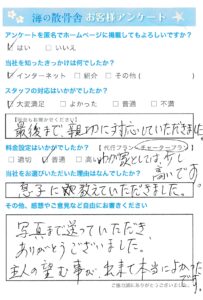 海の散骨舎 お客様アンケート
アンケートを匿名でホームページに掲載してもよろしいですか?
はい □ いいえ
当社を知ったきっかけは何でしたか?
インターネット □ 紹介 □ その他( )
スタッフの対応はいかがでしたか?
大変満足 □ よかった □ 普通 □ 不満
最後まで、親切に対応していただきました。
料金設定はいかがでしたか? 【代行プラン・チャータープラン】
□ 適切 普通 □ 高い
我が家としては、少し高いです。
当社をお選びいただいた理由はなんでしたか?
息子に教えていただきました。
その他、感想やご意見などご自由にお書きください
写真まで送っていただき
ありがとうございました。
主人の望む事が、出来て本当によかったです。
ご協力誠にありがとうございました。